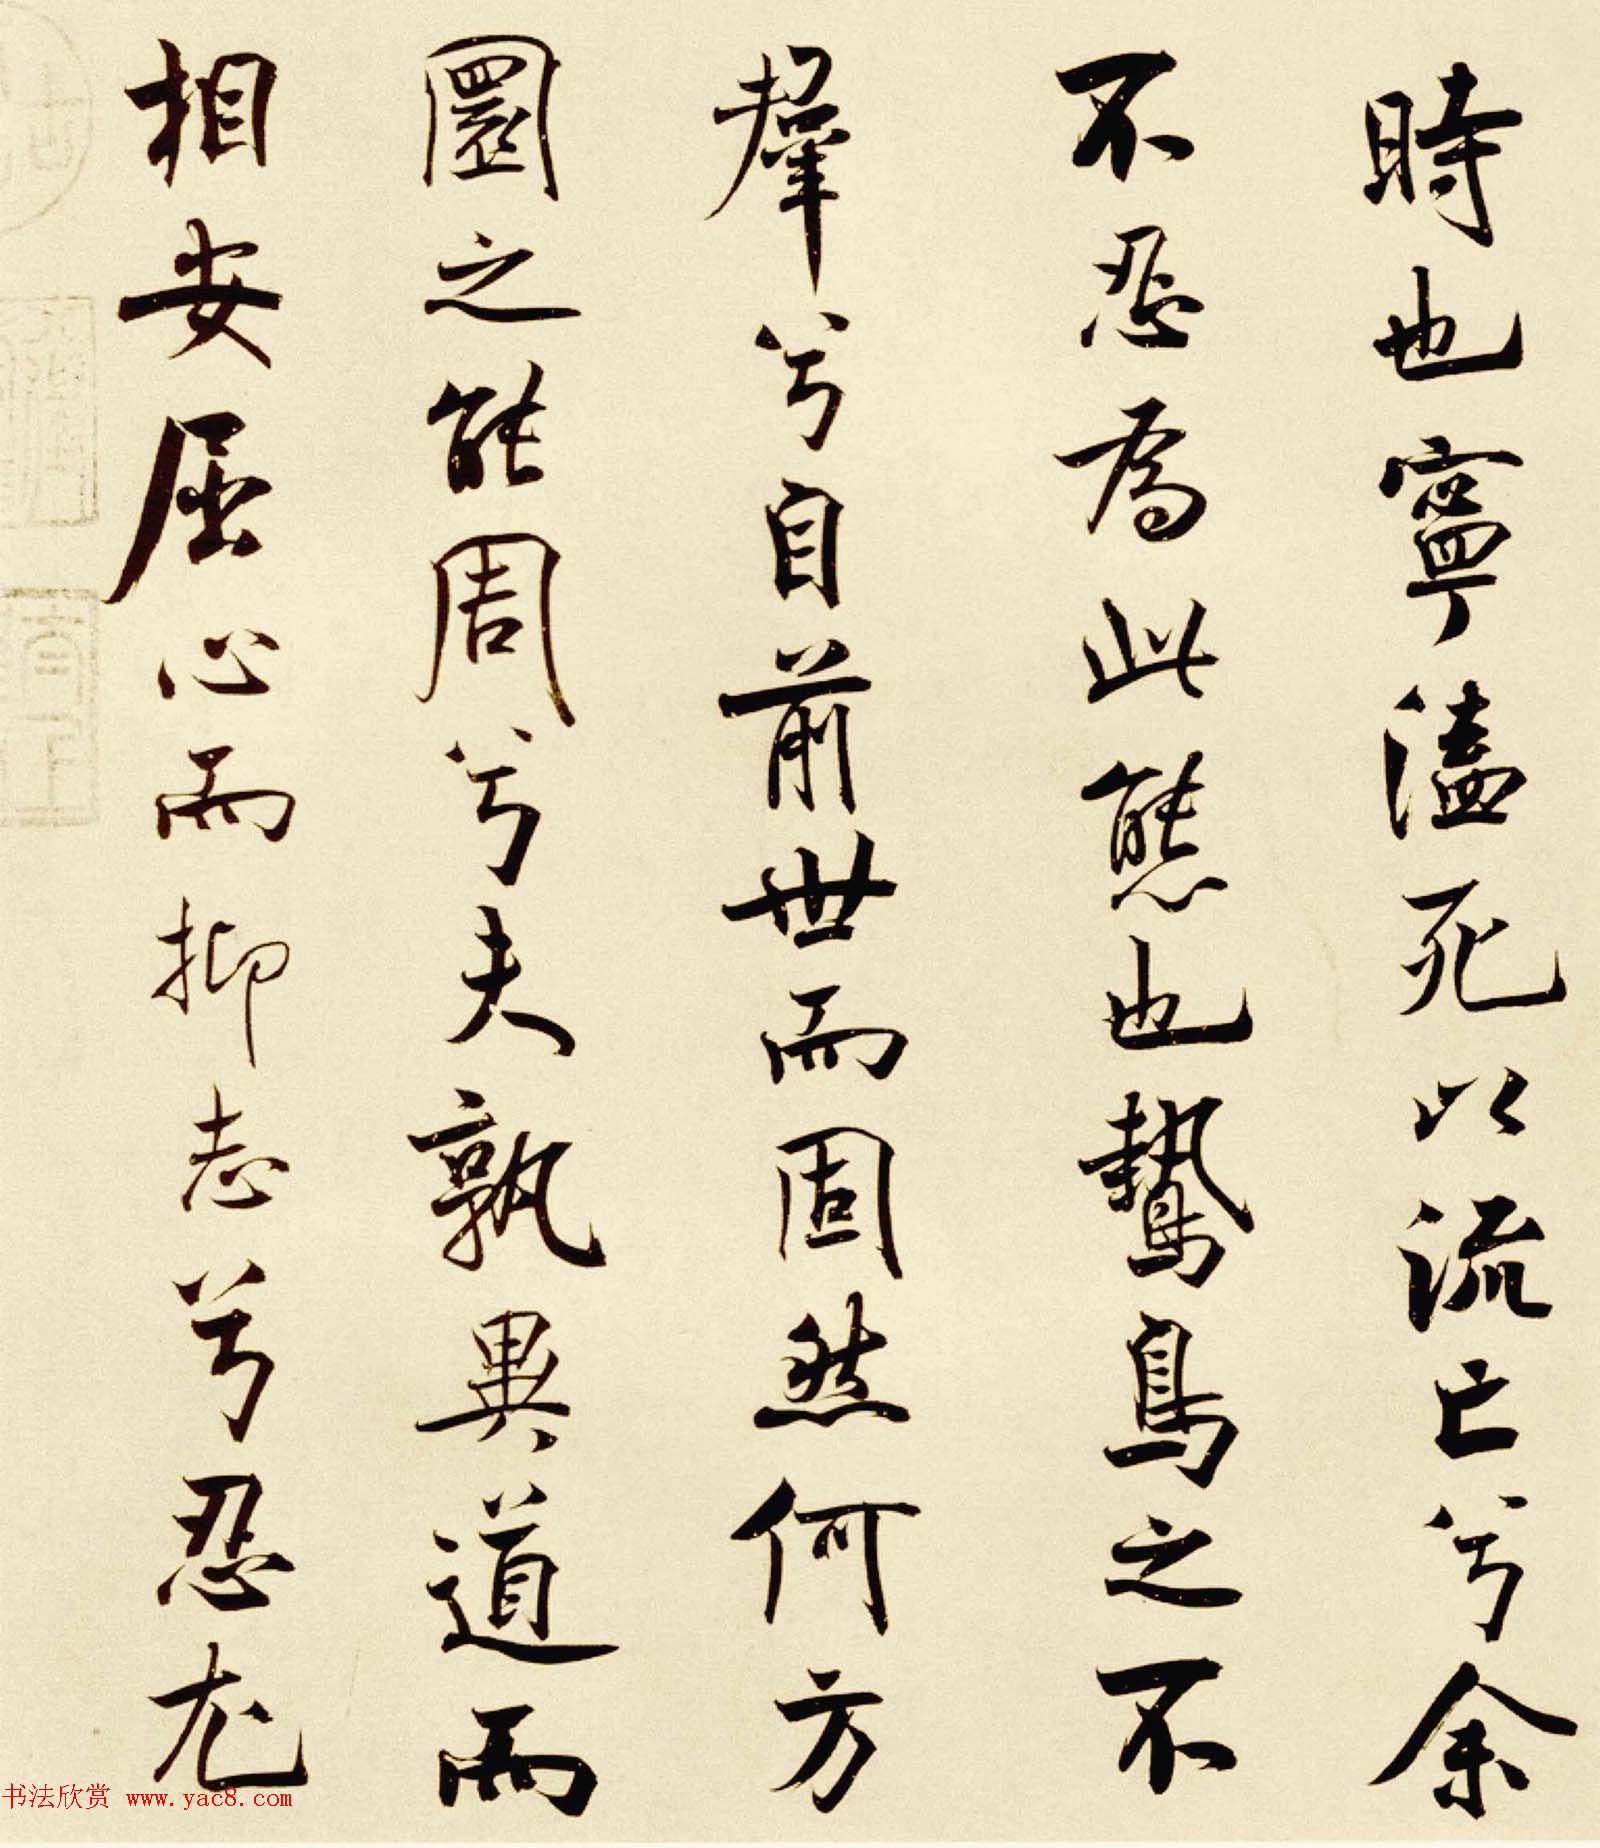 時也寧溘死以流亡兮余
不忍為此態也鷙鳥之不
羣兮自前世而固然何方
圜之能周兮夫孰異道而
相安屈心而抑志兮忍尤
书法欣赏 www.yac8.com